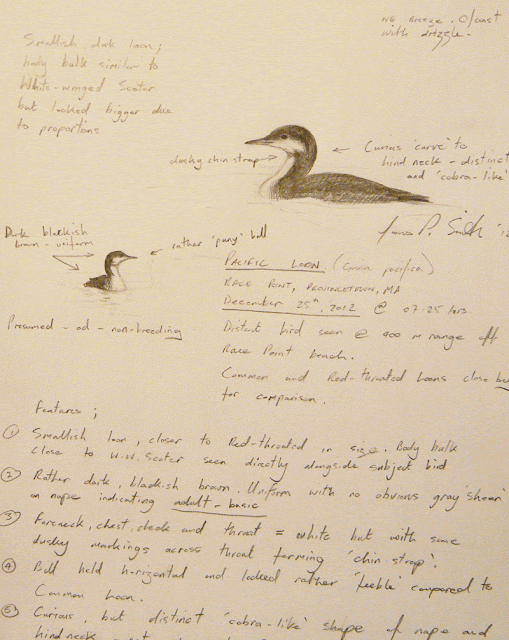 NE Breeze. O/cast
with drizzle.
Smallish dark loon;
body bulk similar to
White-winged Scoter
but looked bigger due
to proportions
dusky chin strap
Curious 'curve' to
hind neck - distinct
and 'cobra-like'
James P. Smith '12
Dark blackish
brown - uniform
rather 'puny' bill
PACIFIC LOON. (Gavia pacifica)
RACE POINT, PROVINCETOWN, MA
December 25th, 2012 @ 07.25 hrs.
Presumed - ad - non-breeding
Distant bird seen @ 400 m range off
Race Point beach.
Common and Red-throated Loons close by
for comparison.
Features;
① Smallish loon, closer to Red-throated in size. Body bulk
close to W.W. Scoter seen directly alongside subject bird
② Rather dark, blackish brown. Uniform with no obvious gray 'sheen'
on nape indicating adult-basic
③ Foreneck, chest, cheek and throat = white but with some
dusky markings across throat forming 'chin strap'.
④ Bill held horizontal and looked rather 'feeble' compared to
Common Loon.
⑤ Curious, but distinct 'cobra-like' shape of nape and
hind neck